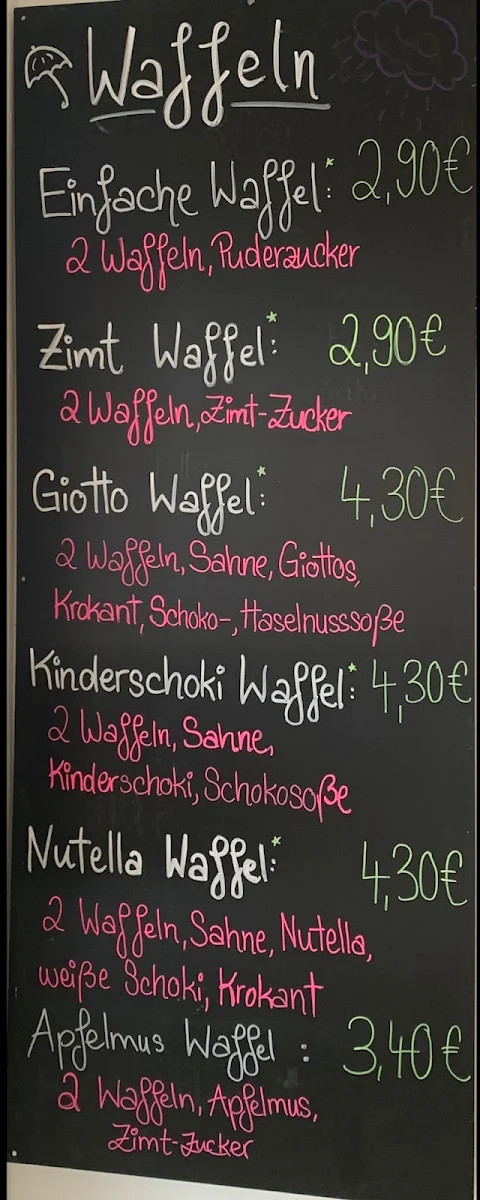 Waffeln
Einfache Waffel:* 2,90€
2 Waffeln, Puderzucker
Zimt Waffel:* 2,90€
2 Waffeln, Zimt-Zucker
Giotto Waffel:* 4,30€
2 Waffeln, Sahne, Giottos,
Krokant, Schoko-, Haselnusssoße
Kinderschoki Waffel:* 4,30€
2 Waffeln, Sahne,
Kinderschoki, Schokosoße
Nutella Waffel:* 4,30€
2 Waffeln, Sahne, Nutella,
weiße Schoki, Krokant
Apfelmus Waffel : 3,40€
2 Waffeln, Apfelmus,
Zimt-Zucker